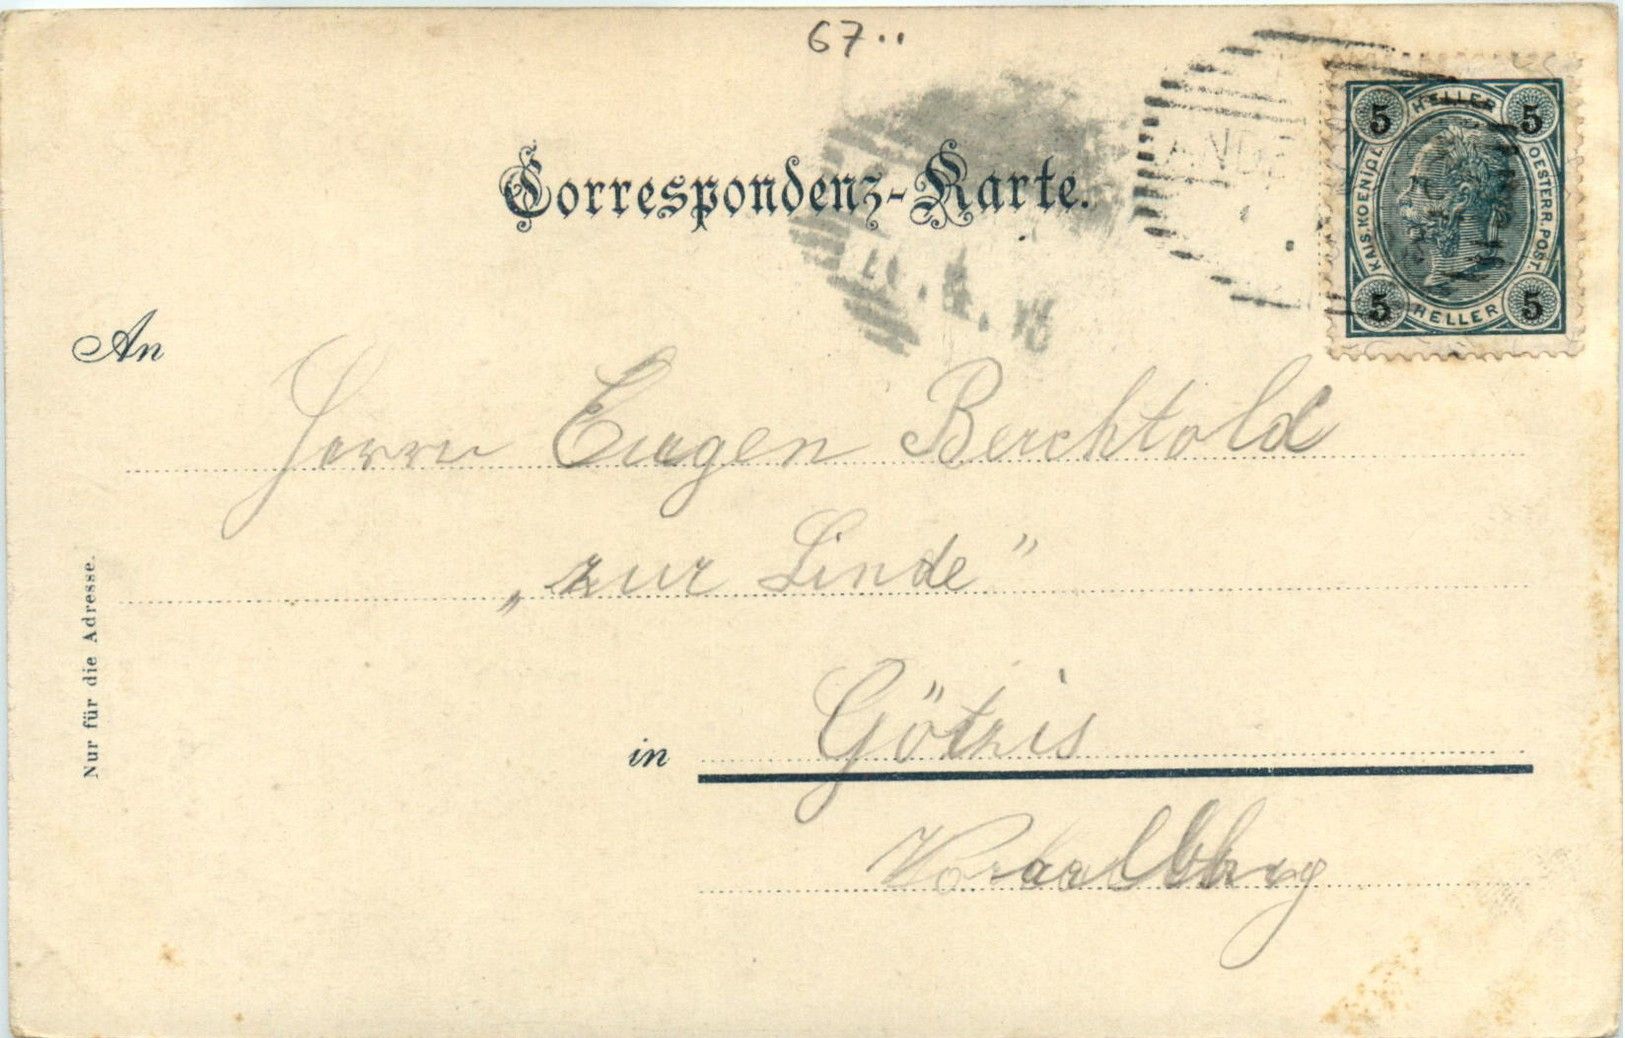 67..
Correspondenz-Karte.
HELLER
5 5
KAIS. KOENIGL. OESTERR. POST.
5 5
HELLER
An
Herrn Eugen Berchtold
„zur Linde”
in Götzis
Vorarlberg
Nur für die Adresse.